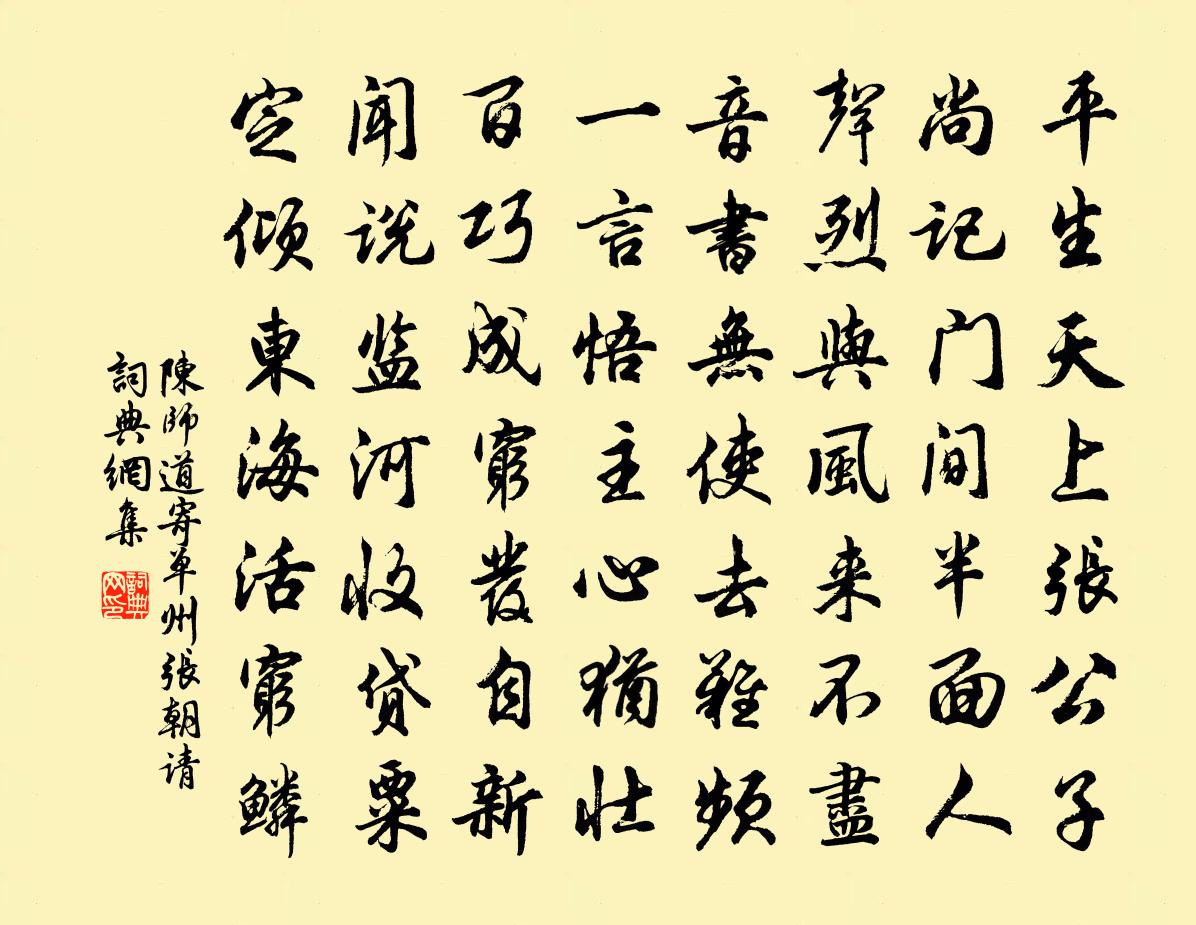 平生天上張公子
尚记门间半面人
聲烈與風来不盡
音書無使去難頻
一言悟主心猶壮
百巧成窮發自新
闻说监河收贷粟
定倾東海活窮鳞
陳師道寄单州張朝请
詞典網集
詞典网印